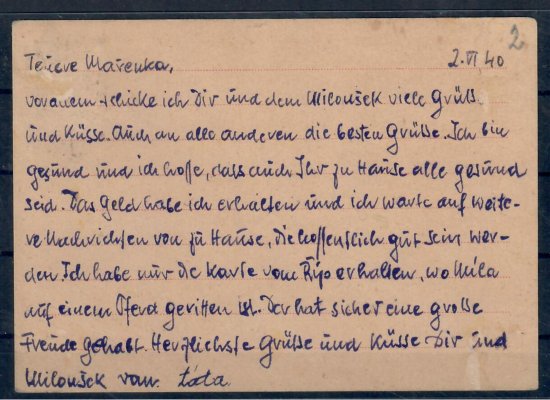 2
Teuere Mařenka, 2. VI. 40
vorallem schicke ich Dir und dem Miloušek viele Grüße
und Küsse. Auch an alle anderen die besten Grüße. Ich bin
gesund und ich hoffe, dass auch Ihr zu Hause alle gesund
seid. Das Geld habe ich erhalten und ich warte auf weite-
re Nachrichten von zu Hause, die hoffentlich gut sein wer-
den. Ich habe nur die Karte vom Říp erhalten, wo Míla
auf einem Pferd geritten ist. Der hat sicher eine große
Freude gehabt. Herzlichste Grüße und Küsse Dir und
Miloušek von táta.